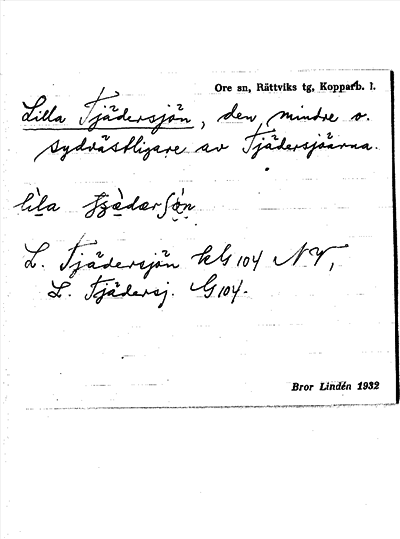 Ore sn, Rättviks tg, Kopparb. l.
Lilla Tjädersjön, den mindre o.
sydvästligare av Tjädersjöarna.
L. Tjädersjön kG 104 NV,
L. Tjädersj. G 104.
Bror Lindén 1932